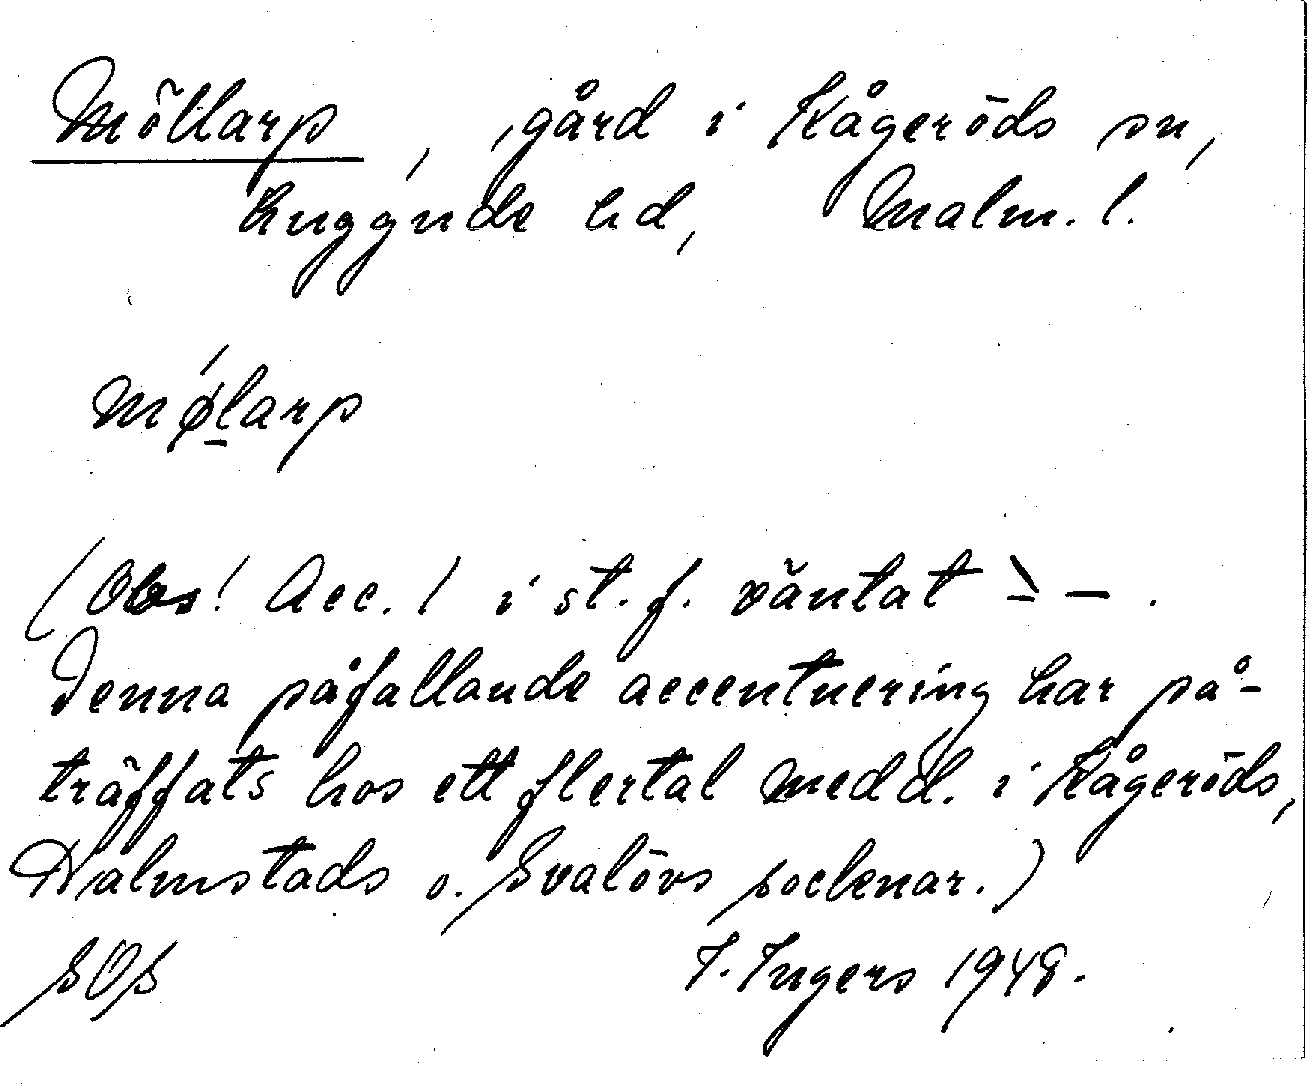 Möllarp, gård i Kågeröds sn,
Luggude hd, Malm. l.
mǿl̲arp
(Obs! Acc. / i st. f. väntat \ – – .
Denna påfallande accentuering har på-
träffats hos ett flertal medd. i Kågeröds,
Halmstads o. Svalövs socknar.)
SOS I. Ingers 1948.